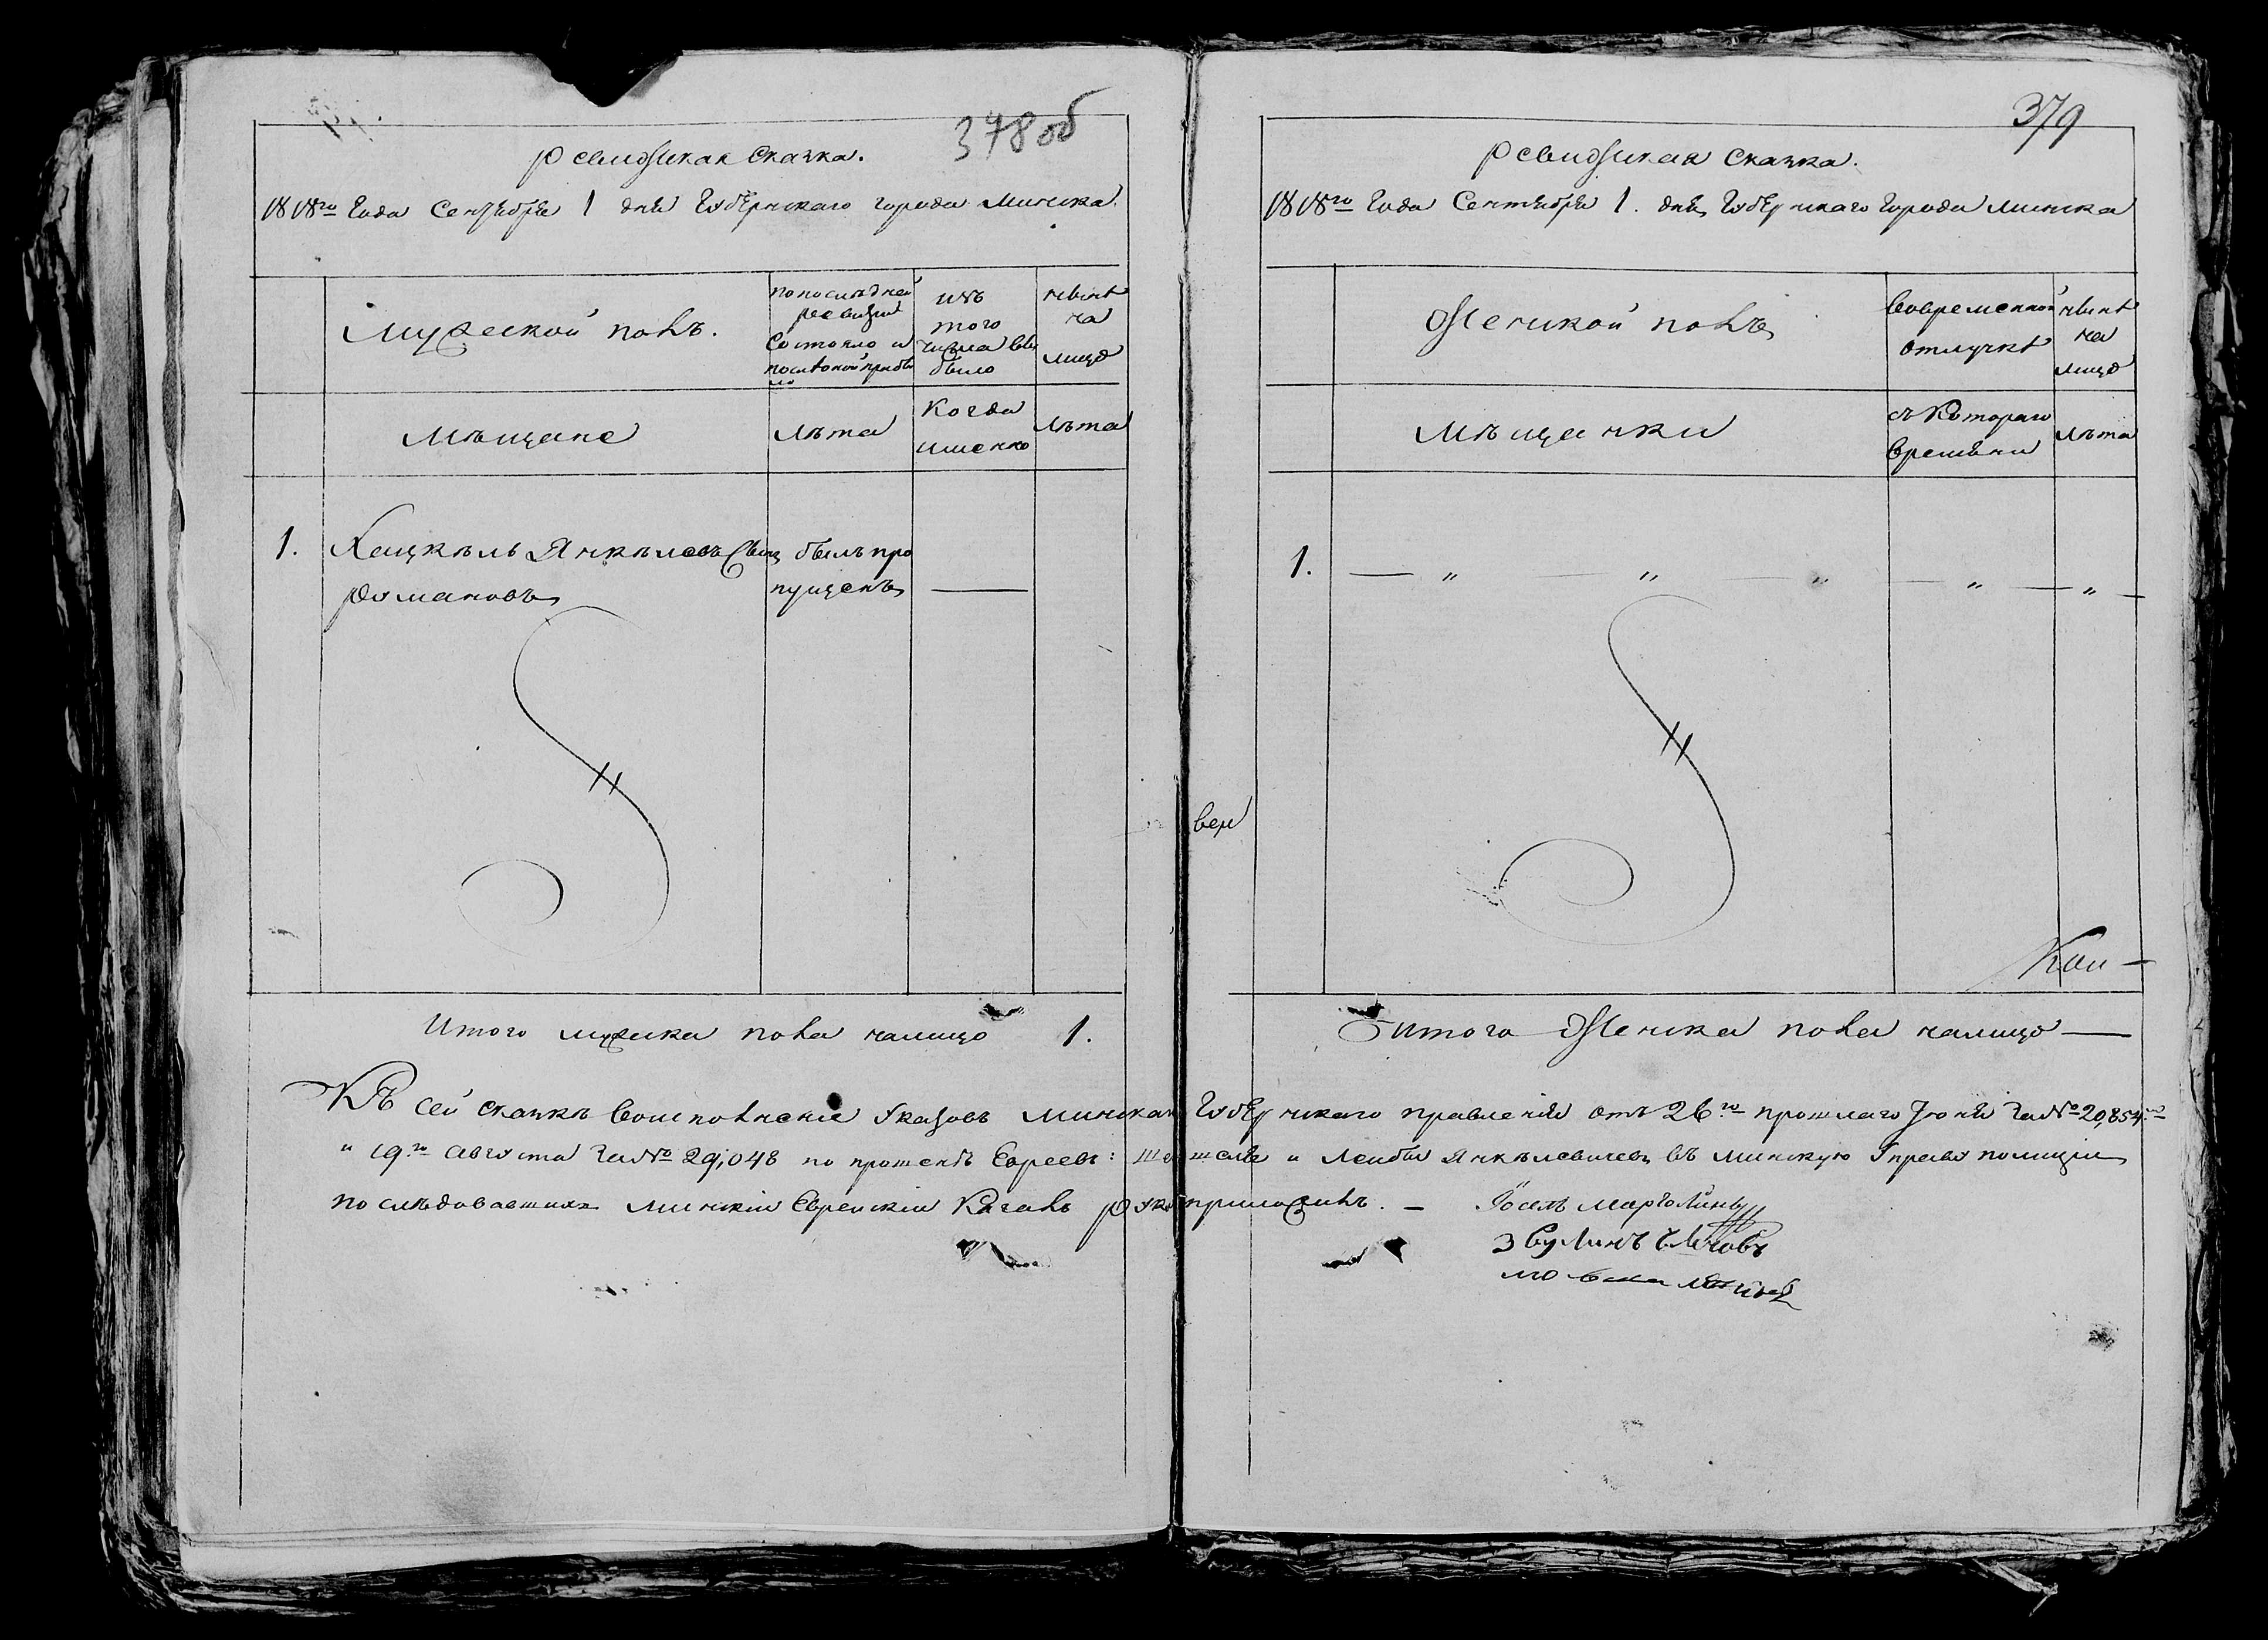 378об
Ревизская Сказка.
1818го года Сентября 1 дня Губернскаго города Минска.
Мужеской полъ.
по последней ревизии состояло и после оной прибыло
изъ того числа выбыло
ныне на лицо
Мѣщане
Лѣта
Когда именно
Лѣта
1. Хацкѣль Янкѣлевъ Сынъ былъ про
Романовъ пущенъ —
Итого мужеска пола налицо 1.
379
Ревизская Сказка.
1818го года Сентября 1. дня Губернскаго города Минска
Женской полъ
Во временной отлучкѣ
нынѣ на лицо
Мѣщанки
съ Котораго времѣни
Лѣта
1. — " — " — " — " — " —
вер
Кон —
Итого Женска пола налицо —
Къ сей сказкѣ Воисполнение Указовъ Минскаго Губернскаго правления отъ 26го прошлаго Июня за № 20,854.мъ
и 19го Августа за № 29,048 по прошенію Евреевъ: и Лейбы Янкѣлевичевъ въ Минскую Управу полиціи
последовавшихъ Минскій Еврейскій Кагалъ руку приложилъ. — Іосель Марголинъ